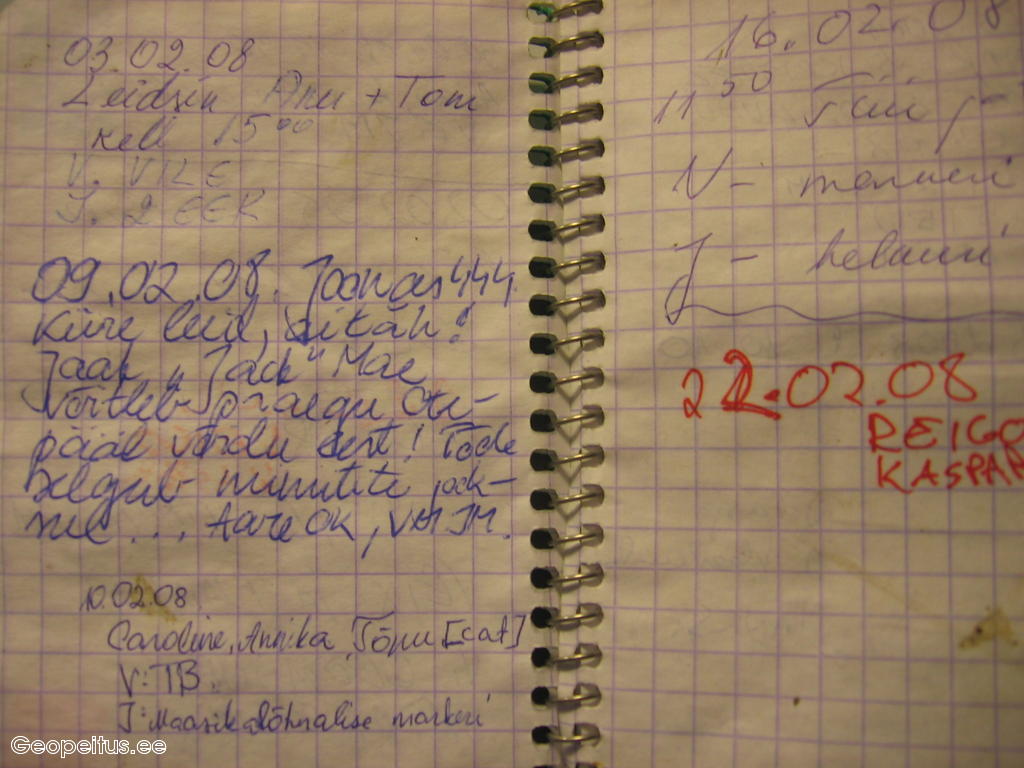 03.02.08
Leidsin Anu + Tom
kell 15⁰⁰
V. VILE
J. 2 EEK
09.02.08. Joonas444.
Kiire leid, aitäh!
Jaak "Jack" Mae
Võrtleb praegu Ote-
pääl võidu eest! Tõde
selgub minutite jook-
sul... Aare OK, VM JM.
10.02.08
Caroline, Annika, Tõnu [cat]
V: TB
J: Maasikalõhnalise markeri
16.02.08
11⁵⁰
V- markeri
J- helkuri
22.02.08
REIGO
KASPAR
Geopeitus.ee